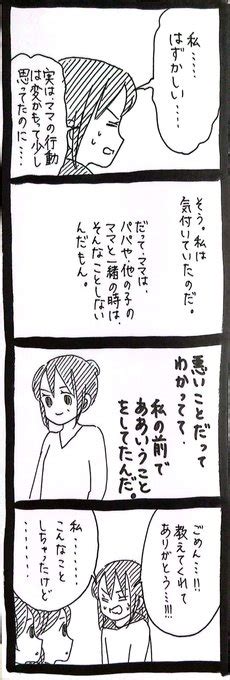 私......
はずかしい....
実はママの行動
は変かもって少し
思ってたのに....
そう。私は
気付いていたのだ。
だって、ママは、
パパや、他の子の
ママと一緒の時は、
そんなことしない
んだもん。
悪いことだって
わかってて、
私の前で
ああいうこと
をしてたんだ。
ごめん...!!
教えてくれて
ありがとう...!!!
私......
こんなこと
しちゃったけど
........